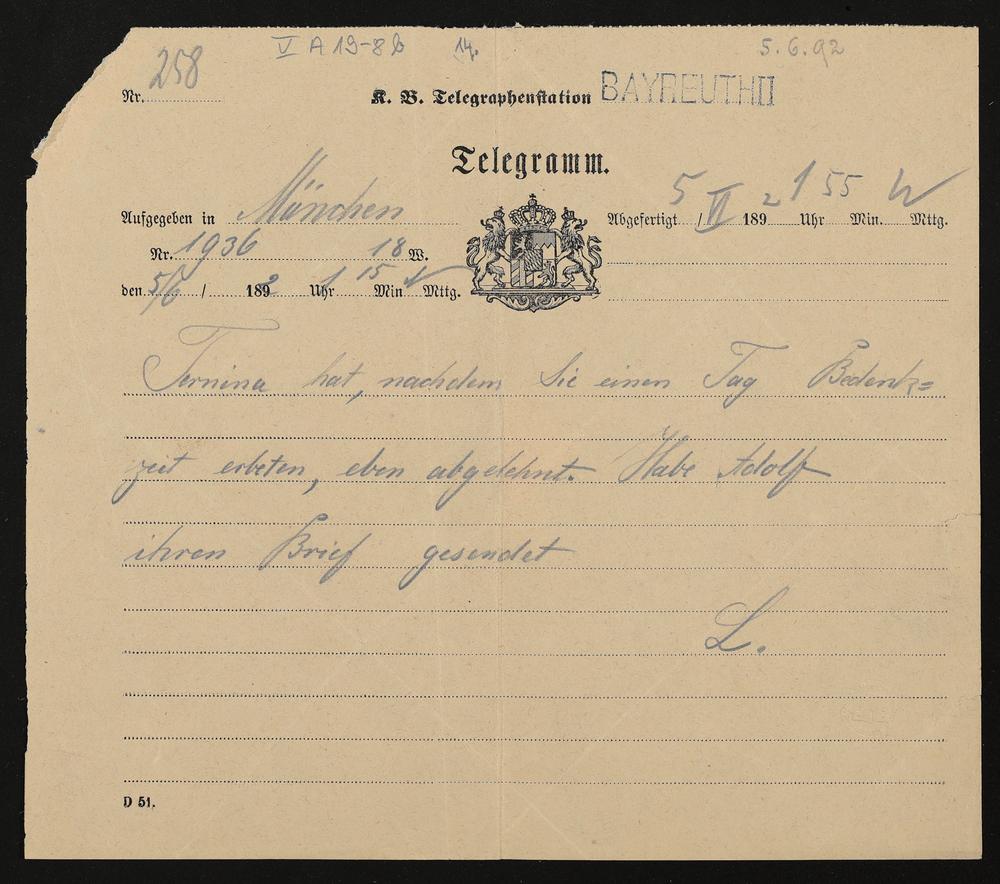 V A 19-8b 14. 5.6.92
Nr. 258
K. B. Telegraphenstation BAYREUTH II
Telegramm.
Aufgegeben in München
Nr. 1936 18 W.
den 5/6 / 1892 Uhr 1 15 Min Mttg.
Abgefertigt 5 / VI 1892 1 Uhr 55 Min. Mttg.
Ternina hat, nachdem Sie einen Tag Bedenk=
zeit erbeten, eben abgelehnt. Habe Adolf
ihren Brief gesendet
L.
D 51.